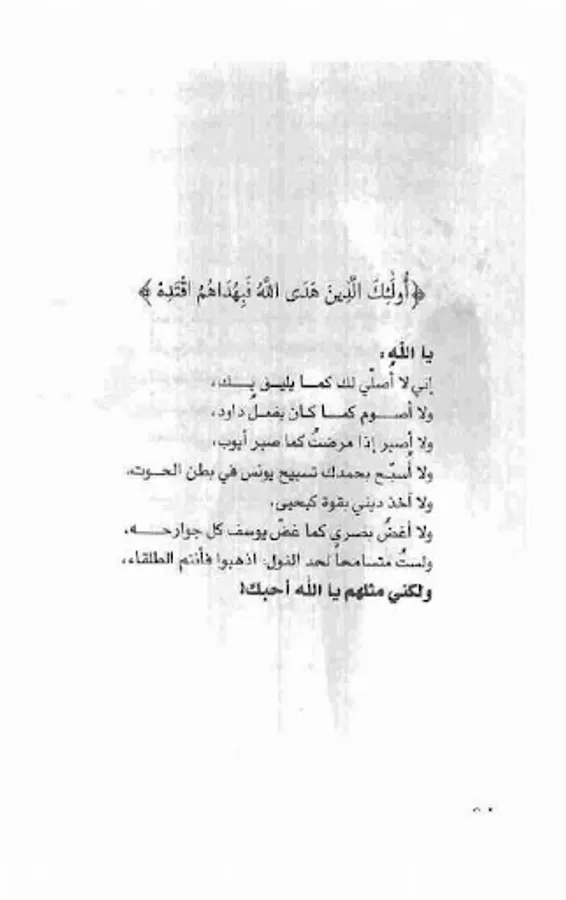 ﴿أُولَٰئِكَ الَّذِينَ هَدَى اللَّهُ فَبِهُدَاهُمُ اقْتَدِهْ﴾
يا الله،
إني لا أصلّي لك كما يليق بك،
ولا أصوم كما كان يفعل داود،
ولا أصبر إذا مرضتُ كما صبر أيوب،
ولا أسبّح بحمدك تسبيح يونس في بطن الحوت،
ولا آخذ ديني بقوة كيحيى،
ولا أغضُّ بصري كما غضّ يوسف كل جوارحه،
ولستُ متسامحاً لحد القول: اذهبوا فأنتم الطلقاء،
ولكني مثلهم يا الله أحبك!